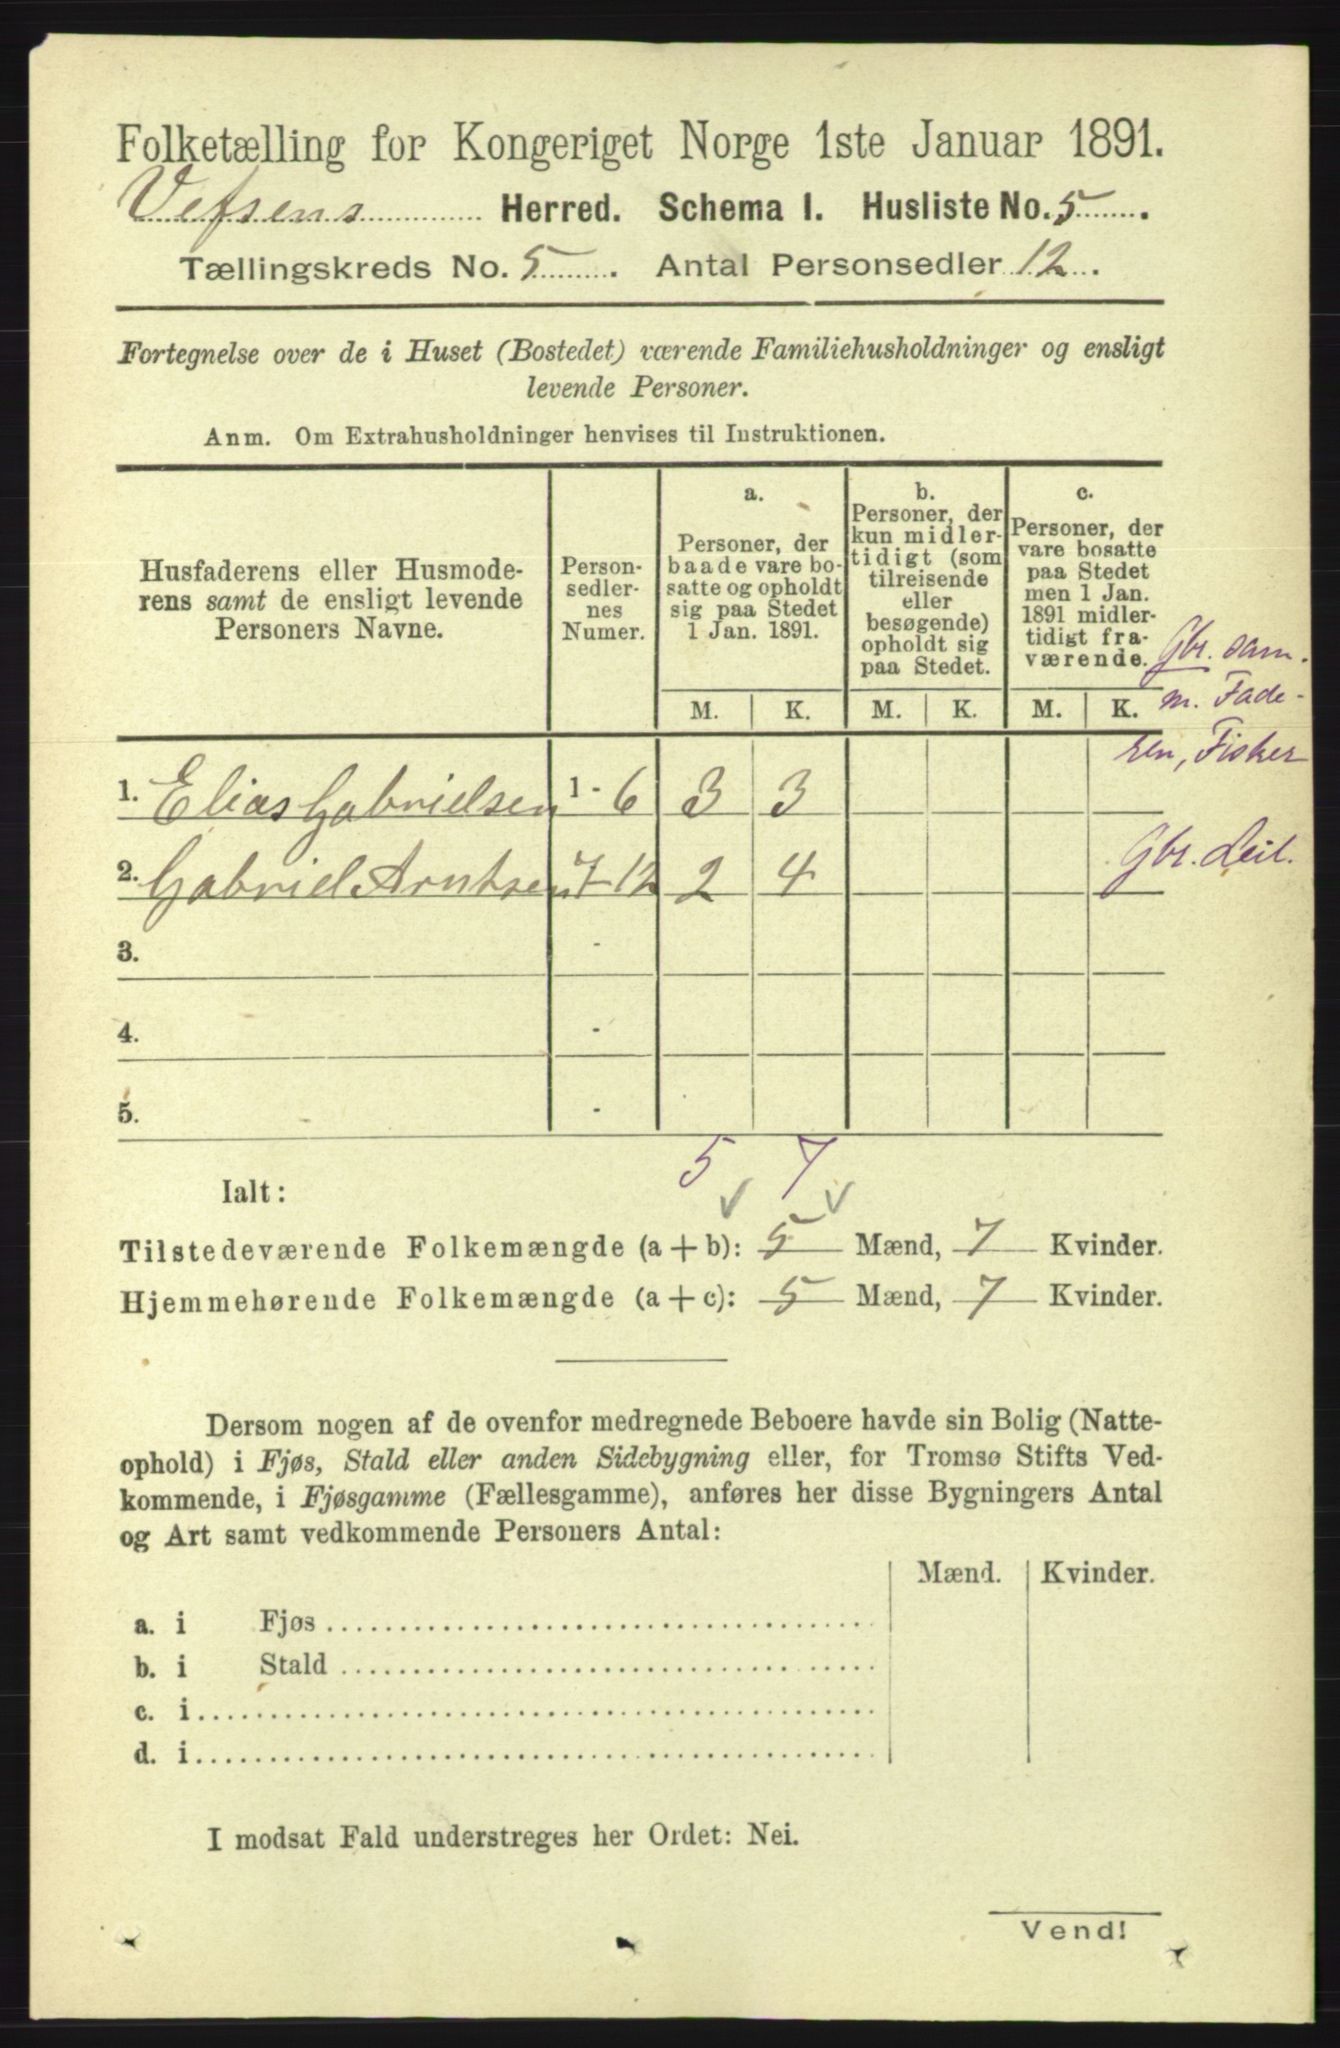 Folketælling for Kongeriget Norge 1ste Januar 1891.
Vefsens Herred. Schema I. Husliste No. 5.
Tællingskreds No. 5. Antal Personsedler 12.
Fortegnelse over de i Huset (Bostedet) værende Familiehusholdninger og ensligt
levende Personer.
Anm. Om Extrahusholdninger henvises til Instruktionen.
Husfaderens eller Husmode-
rens samt de ensligt levende
Personers Navne.
Person-
sedler-
nes
Numer.
a.
Personer, der
baade vare bo-
satte og opholdt
sig paa Stedet
1 Jan. 1891.
b.
Personer, der
kun midler-
tidigt (som
tilreisende
eller
besøgende)
opholdt sig
paa Stedet.
c.
Personer, der
vare bosatte
paa Stedet
men 1 Jan.
1891 midler-
tidigt fra-
værende.
M. K. M. K. M. K.
Gbr. sam.
m. Fade-
ren, Fisker
1. Elias Gabrielsen 1 - 6 3 3
2. Gabriel Arntsen 7-12 2 4 Gbr. Leil.
3. -
4. -
5. -
5 7
Ialt:
Tilstedeværende Folkemængde (a + b): 5 Mænd, 7 Kvinder.
Hjemmehørende Folkemængde (a + c): 5 Mænd, 7 Kvinder.
Dersom nogen af de ovenfor medregnede Beboere havde sin Bolig (Natte-
ophold) i Fjøs, Stald eller anden Sidebygning eller, for Tromsø Stifts Ved-
kommende, i Fjøsgamme (Fællesgamme), anføres her disse Bygningers Antal
og Art samt vedkommende Personers Antal:
Mænd. Kvinder.
a. i Fjøs
b. i Stald
c. i
d. i
I modsat Fald understreges her Ordet: Nei.
Vend!